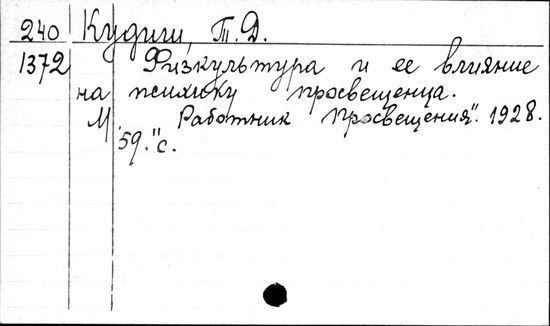 240 Кудиш, Т. Д.
1372 Физкультура и ее влияние
на психику просвещенца.
М. "Работник Просвещения". 1928.
59. с.